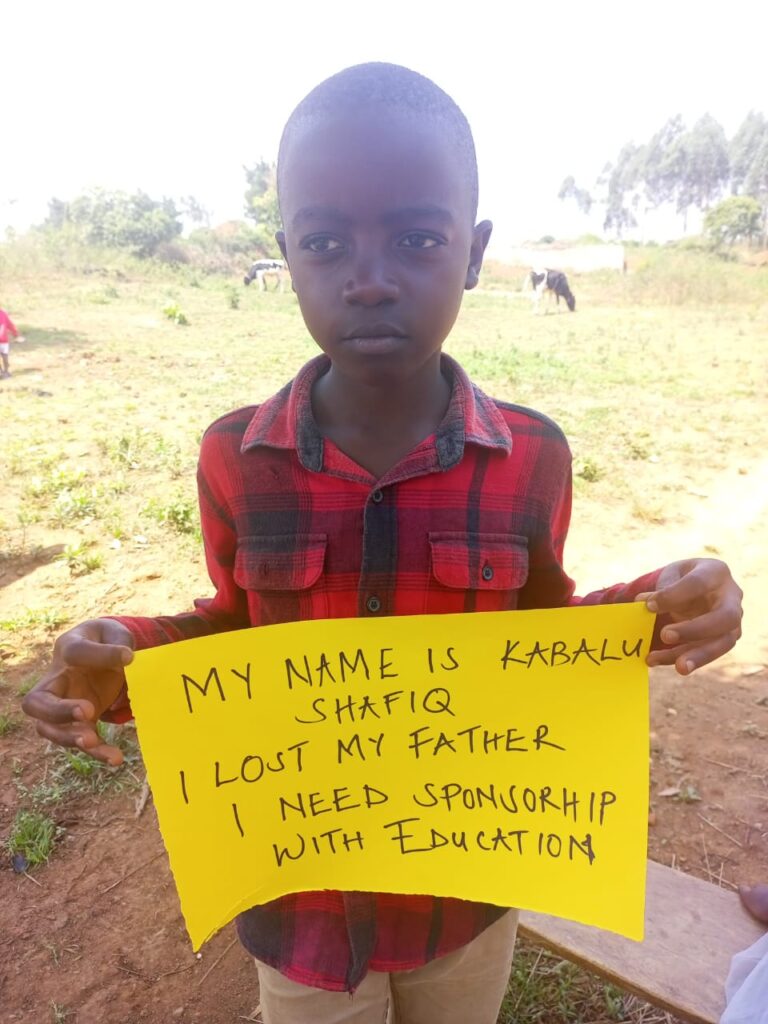 MY NAME IS KABALU
SHAFIQ
I LOST MY FATHER
I NEED SPONSORHIP
WITH EDUCATION